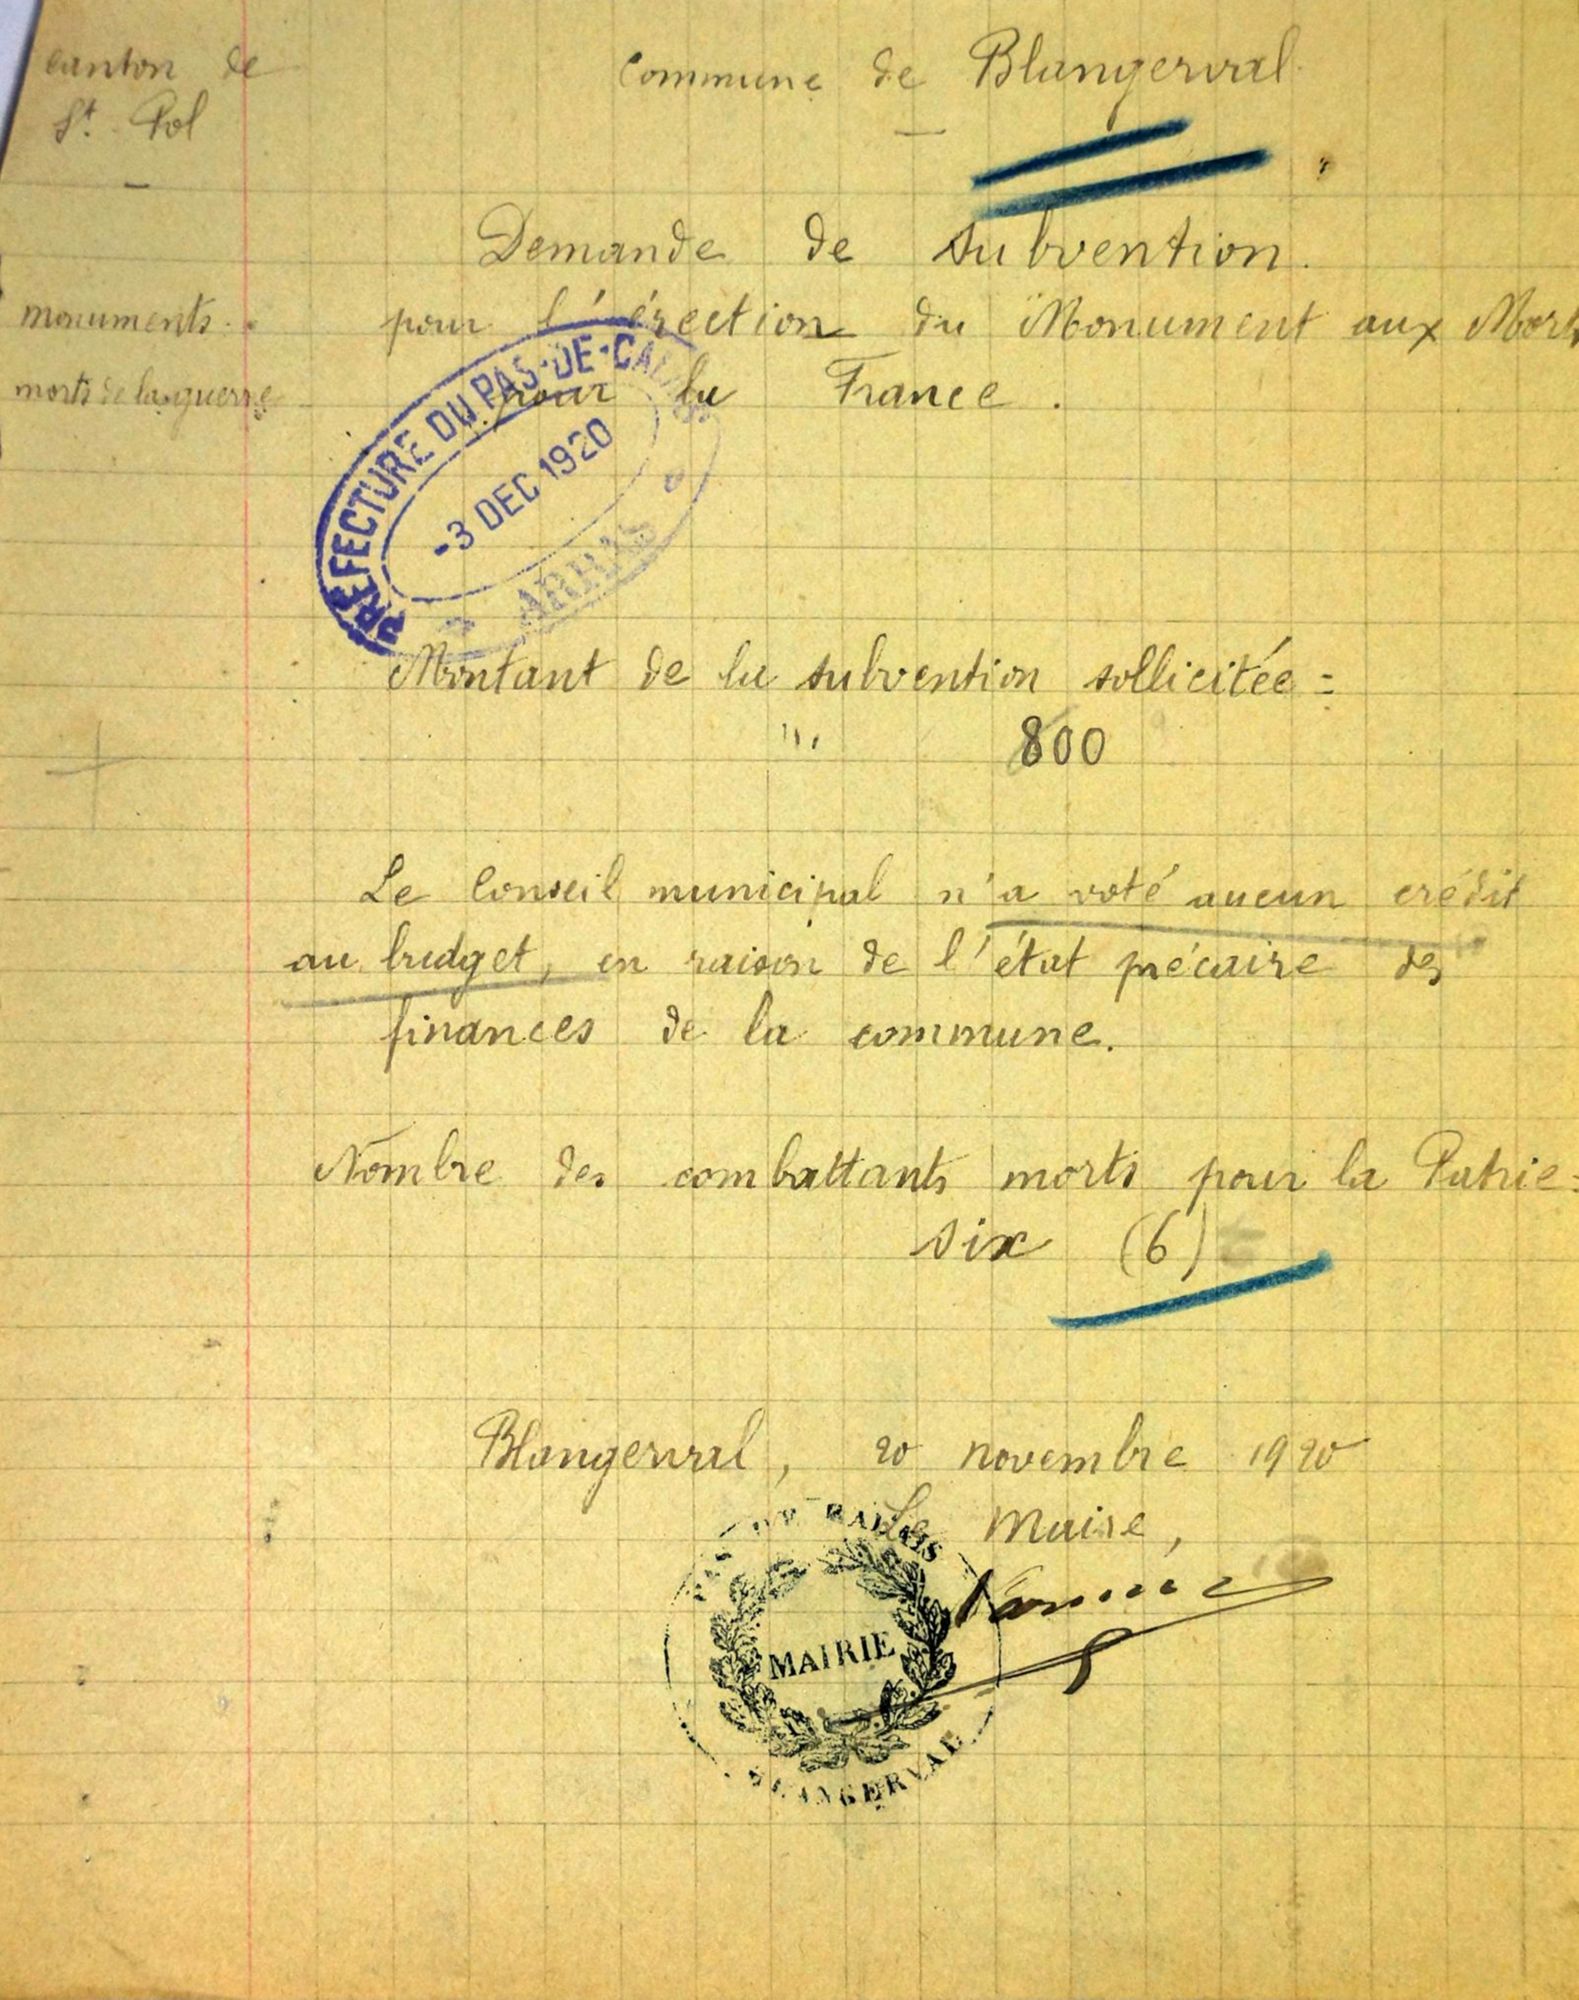 canton de
St. Pol
commune de Blangerval
Demande de subvention.
monuments
pour l'érection du Monument aux Morts
morts de la guerre
pour la France.
PRÉFECTURE DU PAS-DE-CALAIS
-3 DEC 1920
ARRAS
Montant de la subvention sollicitée =
800
Le Conseil municipal n'a voté aucun crédit
au budget, en raison de l'état précaire des
finances de la commune.
Nombre des combattants morts pour la Patrie =
six (6)
Blangerval, 20 novembre 1920
Le Maire,
MAIRIE
BLANGERVAL